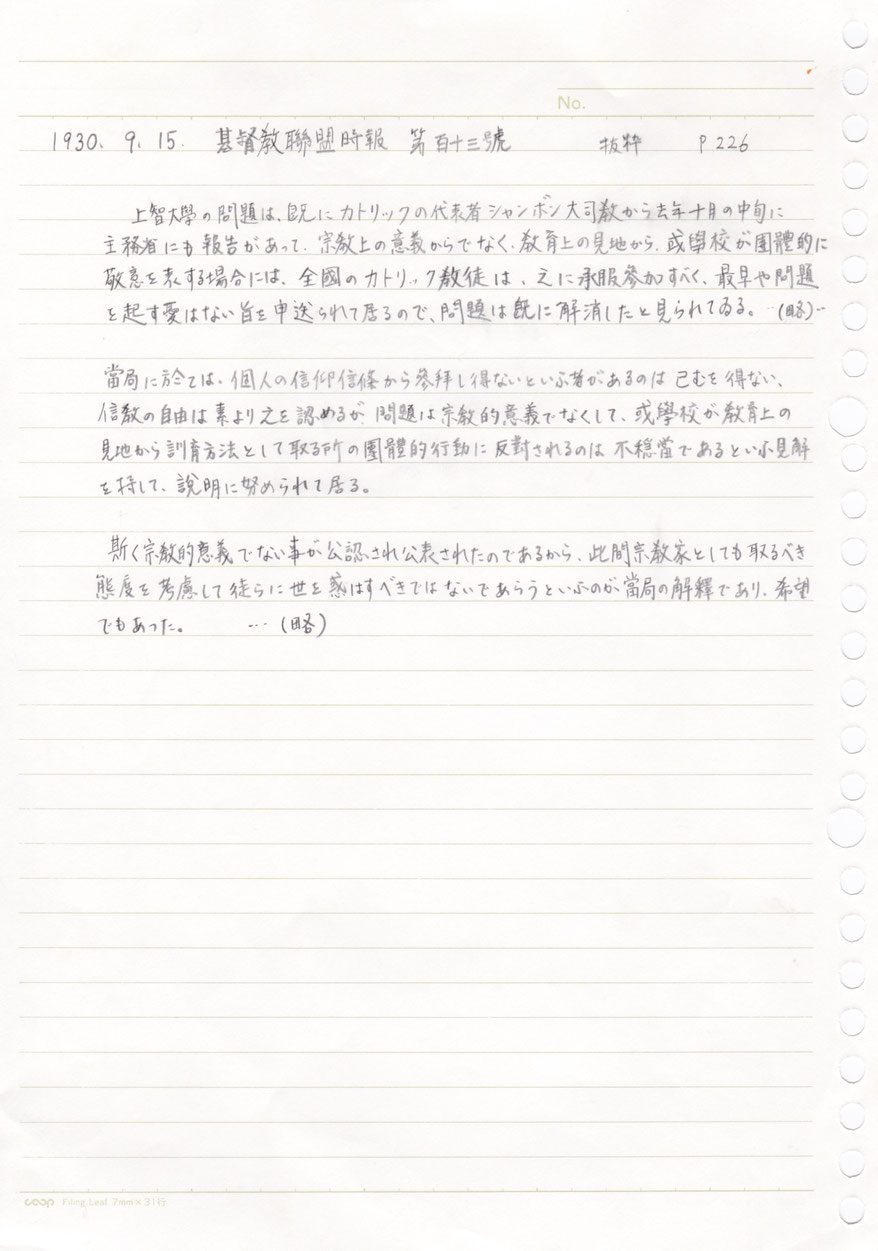 No.
1930. 9. 15. 基督教聯盟時報 第百十三號 抜粋 P226
上智大學の問題は、既にカトリックの代表者シャンボン大司教から去年十月の中旬に
主務省にも報告があって、宗教上の意義からでなく、教育上の見地から、或學校が團體的に
敬意を表する場合には、全國のカトリック教徒は、之に承服參加すべく、最早や問題
を起す憂はない旨を申送られて居るので、問題は既に解消したと見られてゐる。…(略)…
當局に於ては、個人の信仰信條から參拜し得ないといふ者があるのは已むを得ない、
信教の自由は素より之を認めるが 問題は宗教的意義でなくして、或學校が教育上の
見地から訓育方法として取る所の團體的行動に反對されるのは不穩當であるといふ見解
を持して、説明に努められて居る。
斯く宗教的意義でない事が公認され公表されたのであるから、此間宗教家としても取るべき
態度を考慮して徒らに世を惑はすべきではないであらうといふのが當局の解釋であり、希望
でもあった。 …(略)
coop Filing Leaf 7mm×31行